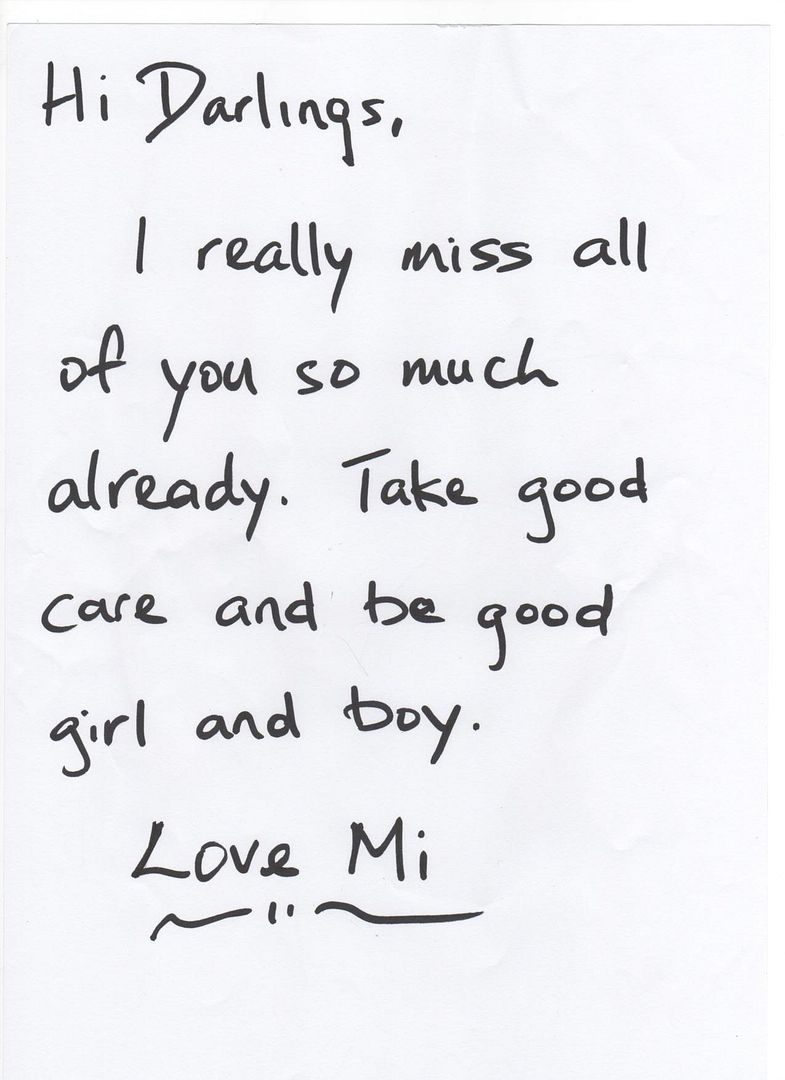 Hi Darlings,
I really miss all
of you so much
already. Take good
care and be good
girl and boy.
Love Mi